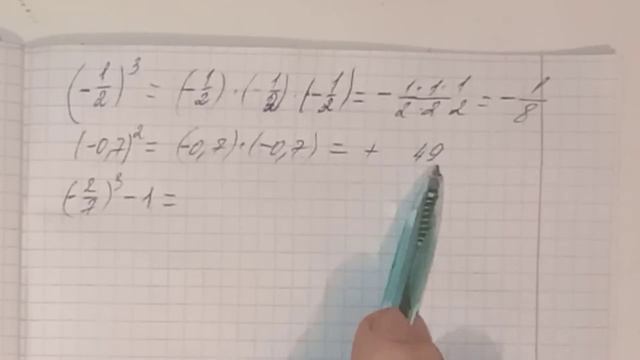 (-1/2)³ = (-1/2)·(-1/2)·(-1/2) = - 1·1·1/2·2·2 = - 1/8
(-0,7)² = (-0,7)·(-0,7) = + 49
(-2/7)³ - 1 =